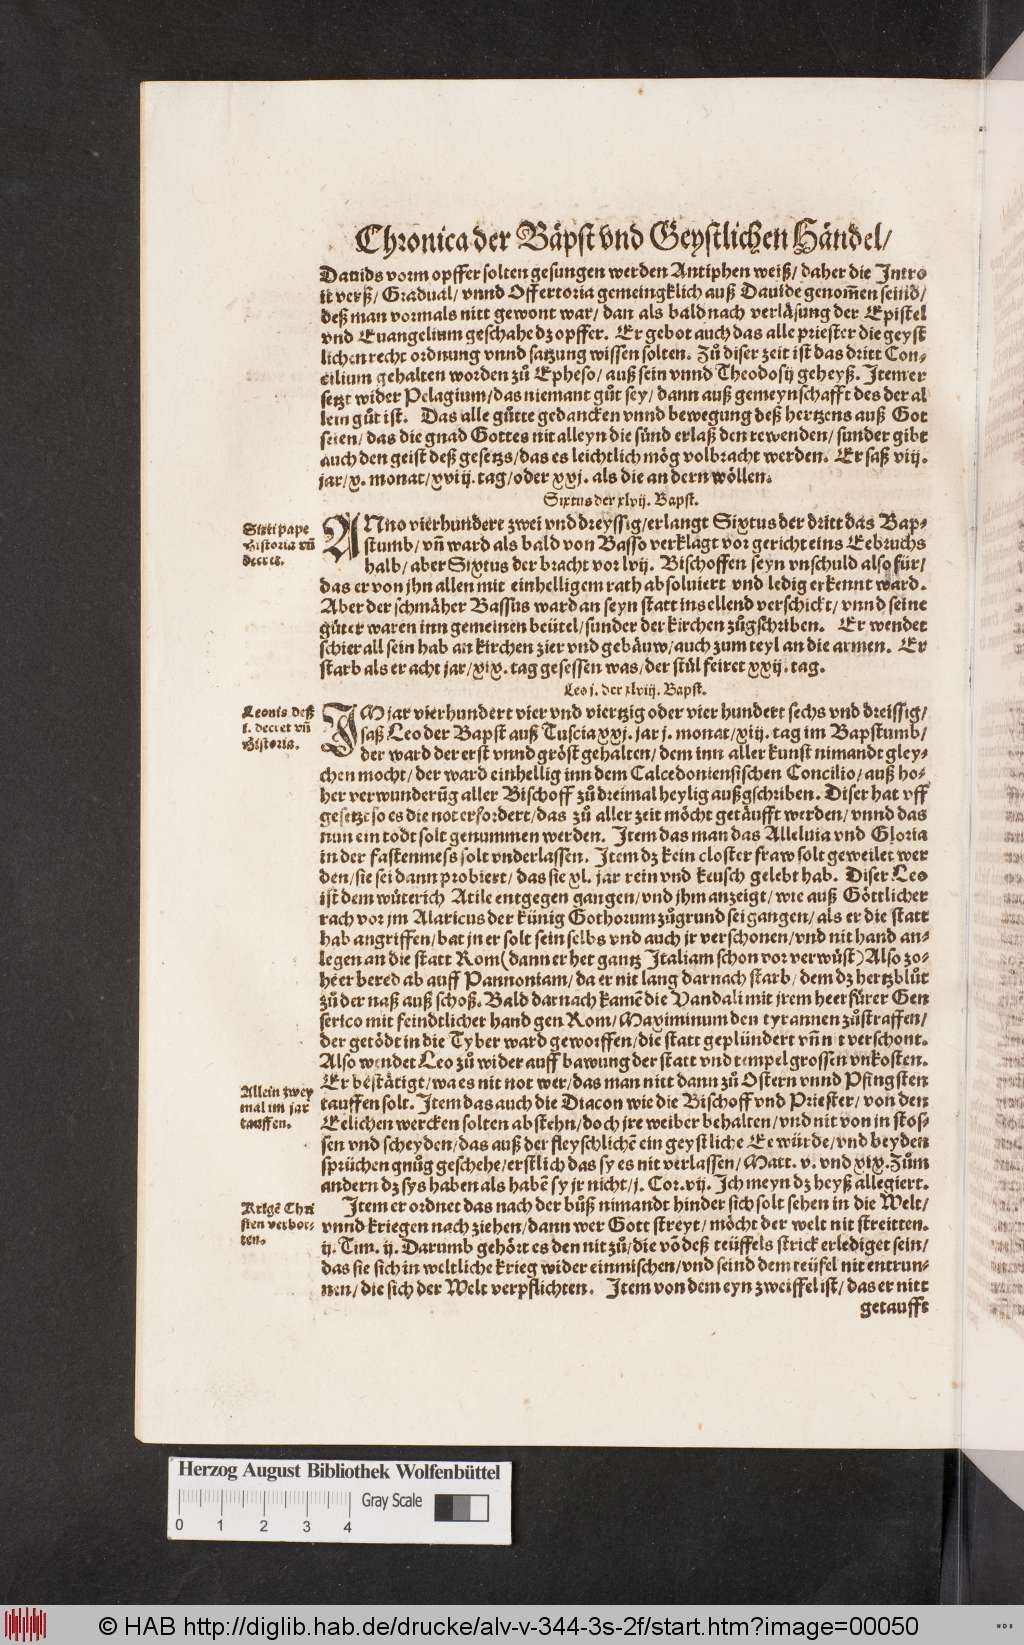 Chronica der Bäpst vnd Geystlichen Händel/
Dauids vorm opffer solten gesungen werden Antiphen weiß/ daher die Intro
it verß/ Gradual/ vnnd Offertoria gemeingklich auß Dauide genom̃en seind/
deß man vormals nitt gewont war/ dan als bald nach verläsung der Epistel
vnd Euangelium geschahe dz opffer. Er gebot auch das alle priester die geyst
lichen recht ordnung vnnd satzung wissen solten. Zů diser zeit ist das dritt Con-
cilium gehalten worden zů Epheso/ auß sein vnnd Theodosij geheyß. Item er
setzt wider Pelagium/ das niemant gůt sey/ dann auß gemeynschafft des der al
lein gůt ist. Das alle gůtte gedancken vnnd bewegung deß hertzens auß Got
seien/ das die gnad Gottes nit alleyn die sünd erlaß den rewenden/ sunder gibt
auch den geist deß gesetzs/ das es leichtlich mög volbracht werden. Er saß viij.
jar/ x. monat/ xvij. tag/ oder xxj. als die andern wöllen.
Sixtus der xlvij. Bapst.
Sixti pape
Historia vñ
decret.
ANno vierhundert zwei vnd dreyssig/ erlangt Sixtus der dritt das Bap-
stumb/ vñ ward als bald von Basso verklagt vor gericht eins Eebruchs
halb/ aber Sixtus der bracht vor lvij. Bischoffen seyn vnschuld also für/
das er von jhn allen mit einhelligem rath absoluiert vnd ledig erkennt ward.
Aber der schmäher Bassus ward an seyn statt ins ellend verschickt/ vnnd seine
güter waren inn gemeinen beütel/ sunder der kirchen zůgschriben. Er wendet
schier all sein hab an kirchen zier vnd gebäuw/ auch zum teyl an die armen. Er
starb als er acht jar/ xix. tag gesessen was/ der stůl feiret xxij. tag.
Leo j. der xlviij. Bapst.
Leonis deß
j. decret vñ
Historia.
IM jar vierhundert vier vnd viertzig oder vier hundert sechs vnd dreissig/
saß Leo der Bapst auß Tuscia xxj. jar j. monat/ xij. tag im Bapstumb/
der ward der erst vnnd gröst gehalten/ dem inn aller kunst nimandt gley-
chen mocht/ der ward einhellig inn dem Calcedoniensischen Concilio/ auß ho-
her verwunderũg aller Bischoff zů dreimal heylig außgschriben. Diser hat vff
gesetzt so es die not erfordert/ das zů aller zeit möcht getäufft werden/ vnnd das
nun ein todt solt genummen werden. Item das man das Alleluia vnd Gloria
in der fastenmess solt vnderlassen. Item dz kein closter fraw solt geweilet wer
den/ sie sei dann probiert/ das sie xl. jar rein vnd keusch gelebt hab. Diser Leo
ist dem wüterich Atile entgegen gangen/ vnd jhm anzeigt/ wie auß Göttlicher
rach vor jm Alaricus der künig Gothorum zůgrund sei gangen/ als er die statt
hab angriffen/ bat jn er solt sein selbs vnd auch jr verschonen/ vnd nit hand an-
legen an die statt Rom (dann er het gantz Italiam schon vor verwüst) Also zo-
he er bered ab auff Pannoniam/ da er nit lang darnach starb/ dem dz hertzblůt
zů der naß auß schoß. Bald darnach kamẽ die Vandali mit jrem heerfürer Gen
serico mit feindtlicher hand gen Rom/ Maximinum den tyrannen zůstraffen/
der getödt in die Tyber ward geworffen/ die statt geplündert vñ nit verschont.
Also wendet Leo zů wider auff bawung der statt vnd tempel grossen vnkosten.
Allein zwey
mal im jar
tauffen.
Er bestätigt/ wa es nit not wer/ das man nitt dann zů Ostern vnnd Pfingsten
tauffen solt. Item das auch die Diacon wie die Bischoff vnd Priester/ von den
Eelichen wercken solten abstehn/ doch jre weiber behalten/ vnd nit von in stos-
sen vnd scheyden/ das auß der fleyschlichẽ ein geystliche Ee würde/ vnd beyden
sprüchen gnůg geschehe/ erstlich das sy es nit verlassen/ Matt. v. vnd xix. Zům
andern dz sys haben als habẽ sy jr nicht/ j. Cor. vij. Ich meyn dz heyß allegiert.
Kriegẽ Chri
sten verbot-
ten.
Item er ordnet das nach der bůß nimandt hinder sich solt sehen in die Welt/
vnnd kriegen nach ziehen/ dann wer Gott streyt/ möcht der welt nit streitten.
ij. Tim. ij. Darumb gehört es den nit zů/ die võ deß teüffels strick erlediget sein/
das sie sich in weltliche krieg wider einmischen/ vnd seind dem teüfel nit entrun-
nen/ die sich der Welt verpflichten. Item von dem eyn zweiffel ist/ das er nitt
getaufft
Herzog August Bibliothek Wolfenbüttel
Gray Scale
0 1 2 3 4
© HAB http://diglib.hab.de/drucke/alv-v-344-3s-2f/start.htm?image=00050